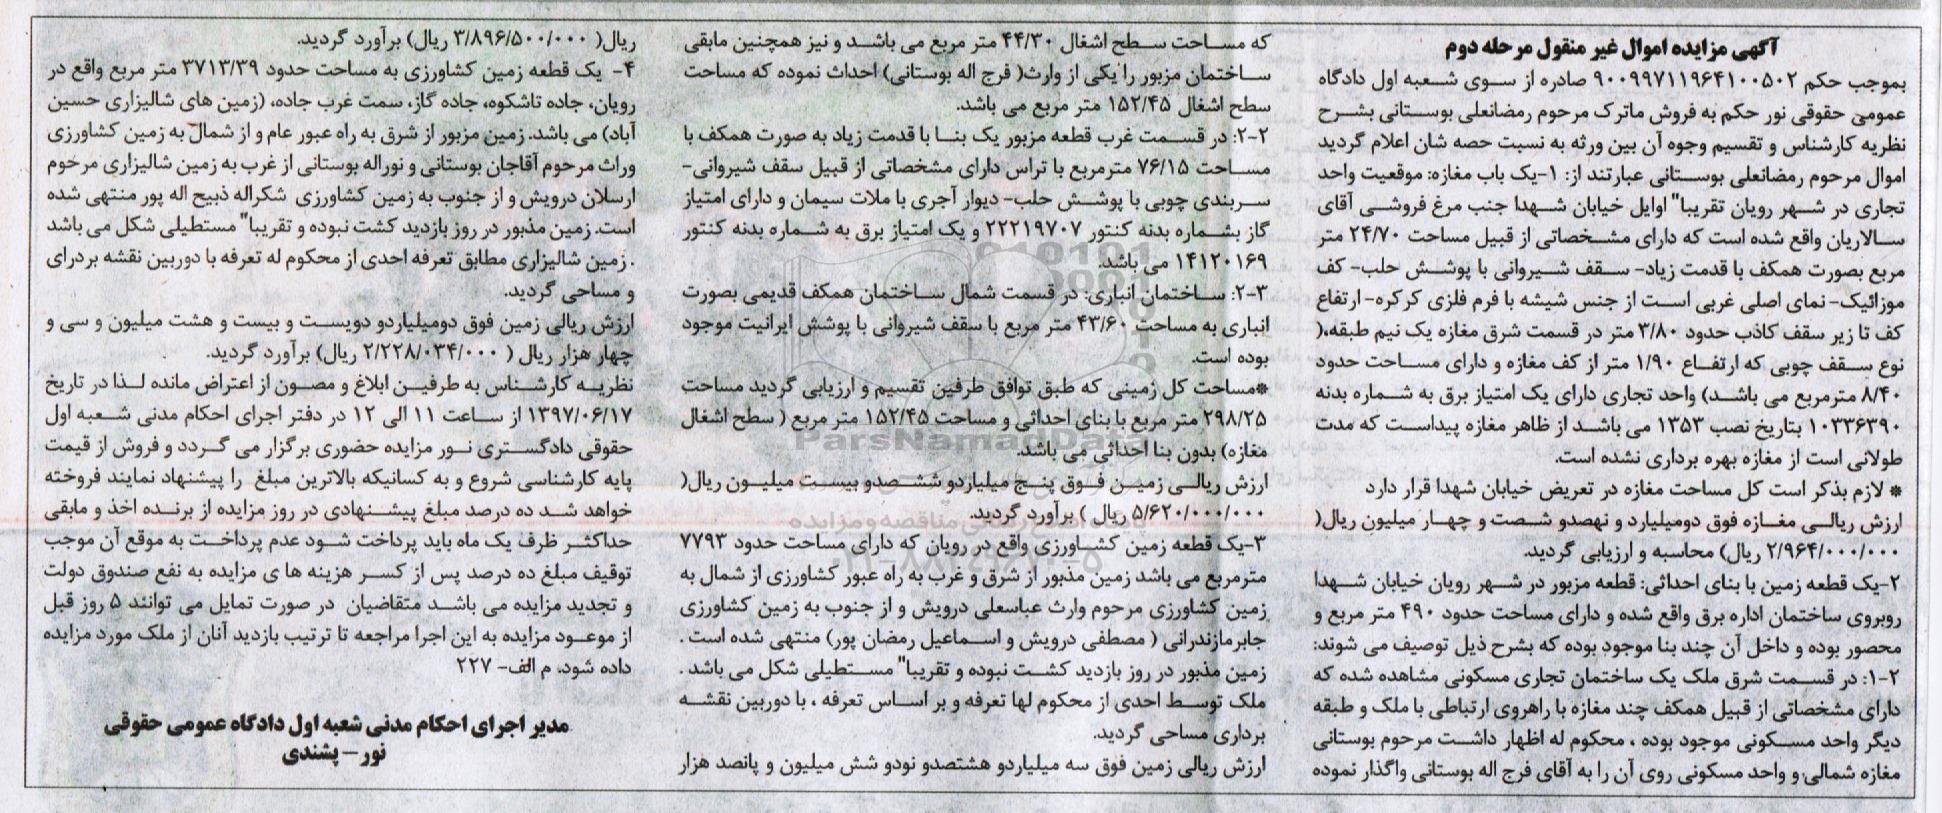 آگهی مزایده اموال غیر منقول مرحله دوم
بموجب حکم ۹۰۰۹۹۷۱۱۹۶۴۱۰۰۵۰۲ صادره از سوی شعبه اول دادگاه
عمومی حقوقی نور حکم به فروش ماترک مرحوم رمضانعلی بوستانی بشرح
نظریه کارشناس و تقسیم وجوه آن بین ورثه به نسبت حصه شان اعلام گردید
اموال مرحوم رمضانعلی بوستانی عبارتند از: ۱-یک باب مغازه: موقعیت واحد
تجاری در شهر رویان تقریبا" اوایل خیابان شهدا جنب مرغ فروشی آقای
سالاریان واقع شده است که دارای مشخصاتی از قبیل مساحت ۲۴/۷۰ متر
مربع بصورت همکف با قدمت زیاد- سقف شیروانی با پوشش حلب- کف
موزائیک- نمای اصلی غربی است از جنس شیشه با فرم فلزی کرکره- ارتفاع
کف تا زیر سقف کاذب حدود ۳/۸۰ متر در قسمت شرق مغازه یک نیم طبقه،(
نوع سقف چوبی که ارتفاع ۱/۹۰ متر از کف مغازه و دارای مساحت حدود
۸/۴۰ مترمربع می باشد) واحد تجاری دارای یک امتیاز برق به شماره بدنه
۱۰۳۳۶۳۹۰ بتاریخ نصب ۱۳۵۳ می باشد از ظاهر مغازه پیداست که مدت
طولانی است از مغازه بهره برداری نشده است.
* لازم بذکر است کل مساحت مغازه در تعریض خیابان شهدا قرار دارد
ارزش ریالی مغازه فوق دومیلیارد و نهصدو شصت و چهار میلیون ریال(
۲/۹۶۴/۰۰۰/۰۰۰ ریال) محاسبه و ارزیابی گردید.
۲-یک قطعه زمین با بنای احداثی: قطعه مزبور در شهر رویان خیابان شهدا
روبروی ساختمان اداره برق واقع شده و دارای مساحت حدود ۴۹۰ متر مربع و
محصور بوده و داخل آن چند بنا موجود بوده که بشرح ذیل توصیف می شوند:
۲-۱: در قسمت شرق ملک یک ساختمان تجاری مسکونی مشاهده شده که
دارای مشخصاتی از قبیل همکف چند مغازه با راهروی ارتباطی با ملک و طبقه
دیگر واحد مسکونی موجود بوده ، محکوم له اظهار داشت مرحوم بوستانی
مغازه شمالی و واحد مسکونی روی آن را به آقای فرج اله بوستانی واگذار نموده
که مساحت سطح اشغال ۴۴/۳۰ متر مربع می باشد و نیز همچنین مابقی
ساختمان مزبور را یکی از وارث( فرج اله بوستانی) احداث نموده که مساحت
سطح اشغال ۱۵۲/۴۵ متر مربع می باشد.
۲-۲: در قسمت غرب قطعه مزبور یک بنا با قدمت زیاد به صورت همکف با
مساحت ۷۶/۱۵ مترمربع با تراس دارای مشخصاتی از قبیل سقف شیروانی-
سربندی چوبی با پوشش حلب- دیوار آجری با ملات سیمان و دارای امتیاز
گاز بشماره بدنه کنتور ۲۲۲۱۹۷۰۷ و یک امتیاز برق به شماره بدنه کنتور
۱۴۱۲۰۱۶۹ می باشد.
۲-۳: ساختمان انباری: در قسمت شمال ساختمان همکف قدیمی بصورت
انباری به مساحت ۴۳/۶۰ متر مربع با سقف شیروانی با پوشش ایرانیت موجود
بوده است.
*مساحت کل زمینی که طبق توافق طرفین تقسیم و ارزیابی گردید مساحت
۲۹۸/۲۵ متر مربع با بنای احداثی و مساحت ۱۵۲/۴۵ متر مربع ( سطح اشغال
مغازه) بدون بنا احداثی می باشد.
ارزش ریالی زمین فوق پنج میلیاردو ششصدو بیست میلیون ریال(
۵/۶۲۰/۰۰۰/۰۰۰ ریال ) برآورد گردید.
۳-یک قطعه زمین کشاورزی واقع در رویان که دارای مساحت حدود ۷۷۹۳
مترمربع می باشد زمین مذبور از شرق و غرب به راه عبور کشاورزی از شمال به
زمین کشاورزی مرحوم وارث عباسعلی درویش و از جنوب به زمین کشاورزی
جابرمازندرانی ( مصطفی درویش و اسماعیل رمضان پور) منتهی شده است .
زمین مذبور در روز بازدید کشت نبوده و تقریبا" مستطیلی شکل می باشد .
ملک توسط احدی از محکوم لها تعرفه و بر اساس تعرفه ، با دوربین نقشه
برداری مساحی گردید.
ارزش ریالی زمین فوق سه میلیاردو هشتصدو نودو شش میلیون و پانصد هزار
ریال( ۳/۸۹۶/۵۰۰/۰۰۰ ریال) برآورد گردید.
۴- یک قطعه زمین کشاورزی به مساحت حدود ۳۷۱۳/۳۹ متر مربع واقع در
رویان، جاده تاشکوه، جاده گاز، سمت غرب جاده، (زمین های شالیزاری حسین
آباد) می باشد. زمین مزبور از شرق به راه عبور عام و از شمال به زمین کشاورزی
وراث مرحوم آقاجان بوستانی و نوراله بوستانی از غرب به زمین شالیزاری مرحوم
ارسلان درویش و از جنوب به زمین کشاورزی شکراله ذبیح اله پور منتهی شده
است. زمین مذبور در روز بازدید کشت نبوده و تقریبا" مستطیلی شکل می باشد
. زمین شالیزاری مطابق تعرفه احدی از محکوم له تعرفه با دوربین نقشه بردرای
و مساحی گردید.
ارزش ریالی زمین فوق دومیلیاردو دویست و بیست و هشت میلیون و سی و
چهار هزار ریال ( ۲/۲۲۸/۰۳۴/۰۰۰ ریال) برآورد گردید.
نظریه کارشناس به طرفین ابلاغ و مصون از اعتراض مانده لذا در تاریخ
۱۳۹۷/۰۶/۱۷ از ساعت ۱۱ الی ۱۲ در دفتر اجرای احکام مدنی شعبه اول
حقوقی دادگستری نور مزایده حضوری برگزار می گردد و فروش از قیمت
پایه کارشناسی شروع و به کسانیکه بالاترین مبلغ را پیشنهاد نمایند فروخته
خواهد شد ده درصد مبلغ پیشنهادی در روز مزایده از برنده اخذ و مابقی
حداکثر ظرف یک ماه باید پرداخت شود عدم پرداخت به موقع آن موجب
توقیف مبلغ ده درصد پس از کسر هزینه ها ی مزایده به نفع صندوق دولت
و تجدید مزایده می باشد متقاضیان در صورت تمایل می توانند ۵ روز قبل
از موعود مزایده به این اجرا مراجعه تا ترتیب بازدید آنان از ملک مورد مزایده
داده شود. م الف- ۲۲۷
مدیر اجرای احکام مدنی شعبه اول دادگاه عمومی حقوقی
نور – پشندی
ParsNamadData
۰۲۱-۸۸۳۴۹۶۷۰-۵